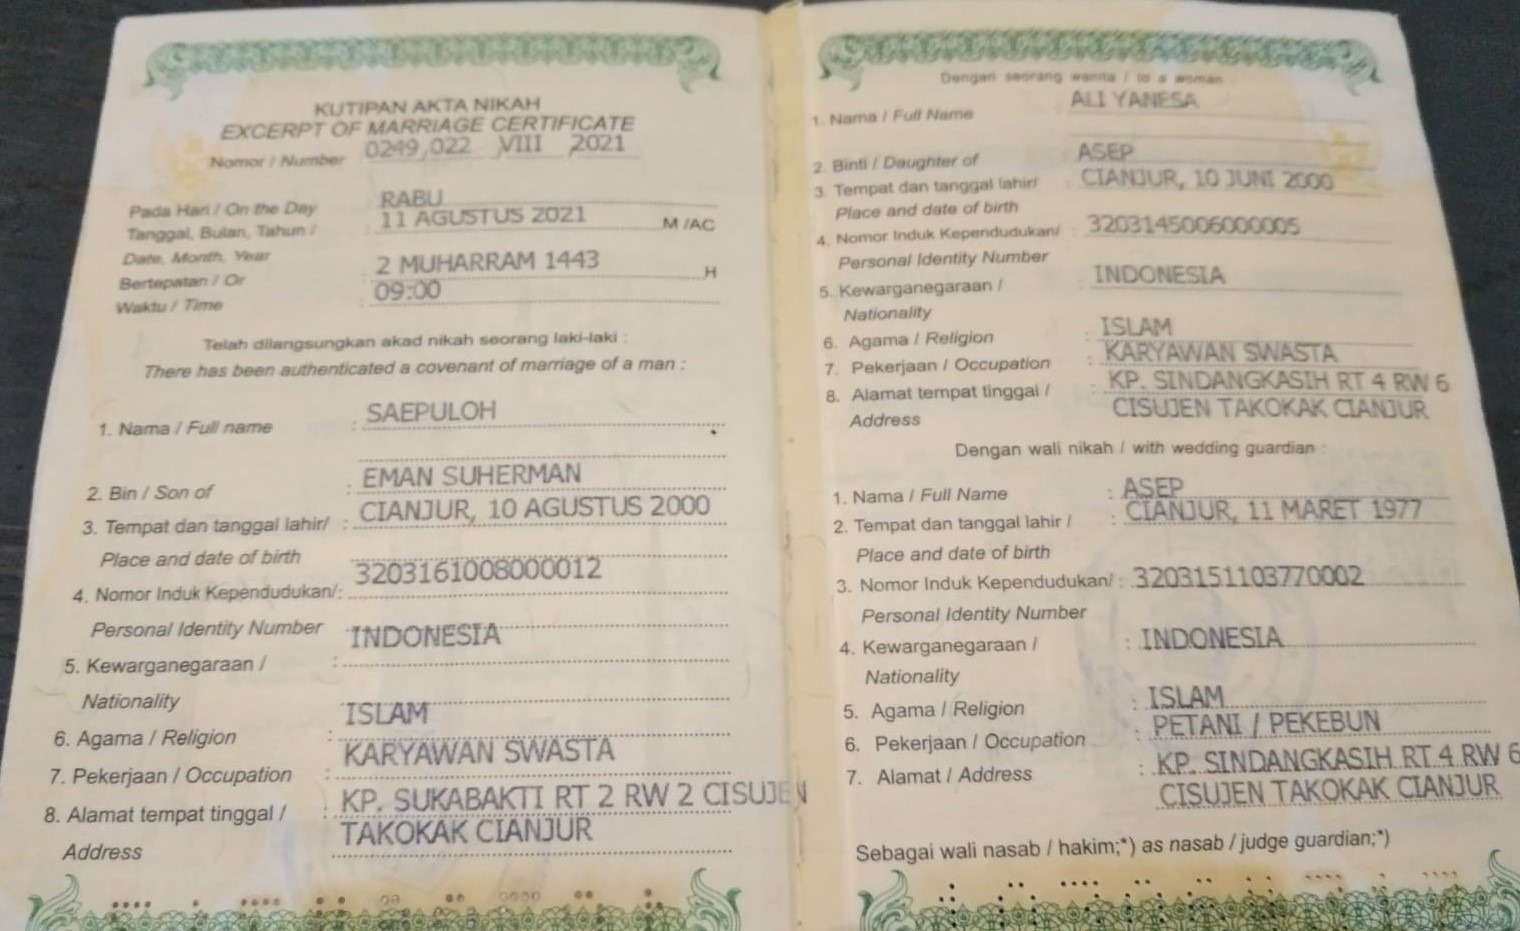 KUTIPAN AKTA NIKAH
EXCERPT OF MARRIAGE CERTIFICATE
Nomor / Number 0249,022 VIII 2021
Pada Hari / On the Day RABU
Tanggal, Bulan, Tahun / 11 AGUSTUS 2021 M /AC
Date, Month, Year
Bertepatan / Or 2 MUHARRAM 1443 H
Waktu / Time 09:00
Telah dilangsungkan akad nikah seorang laki-laki :
There has been authenticated a covenant of marriage of a man :
1. Nama / Full name : SAEPULOH
2. Bin / Son of : EMAN SUHERMAN
3. Tempat dan tanggal lahir/ : CIANJUR, 10 AGUSTUS 2000
Place and date of birth
4. Nomor Induk Kependudukan/: 3203161008000012
Personal Identity Number
5. Kewarganegaraan / : INDONESIA
Nationality
6. Agama / Religion : ISLAM
7. Pekerjaan / Occupation : KARYAWAN SWASTA
8. Alamat tempat tinggal / : KP. SUKABAKTI RT 2 RW 2 CISUJEN
Address TAKOKAK CIANJUR
Dengan seorang wanita / to a woman
1. Nama / Full Name ALI YANESA
2. Binti / Daughter of : ASEP
3. Tempat dan tanggal lahir/ : CIANJUR, 10 JUNI 2000
Place and date of birth
4. Nomor Induk Kependudukan/ : 3203145006000005
Personal Identity Number
5. Kewarganegaraan / : INDONESIA
Nationality
6. Agama / Religion : ISLAM
7. Pekerjaan / Occupation : KARYAWAN SWASTA
8. Alamat tempat tinggal / : KP. SINDANGKASIH RT 4 RW 6
Address CISUJEN TAKOKAK CIANJUR
Dengan wali nikah / with wedding guardian :
1. Nama / Full Name : ASEP
2. Tempat dan tanggal lahir / : CIANJUR, 11 MARET 1977
Place and date of birth
3. Nomor Induk Kependudukan/ : 3203151103770002
Personal Identity Number
4. Kewarganegaraan / : INDONESIA
Nationality
5. Agama / Religion : ISLAM
6. Pekerjaan / Occupation : PETANI / PEKEBUN
7. Alamat / Address : KP. SINDANGKASIH RT 4 RW 6
CISUJEN TAKOKAK CIANJUR
Sebagai wali nasab / hakim;*) as nasab / judge guardian;*)